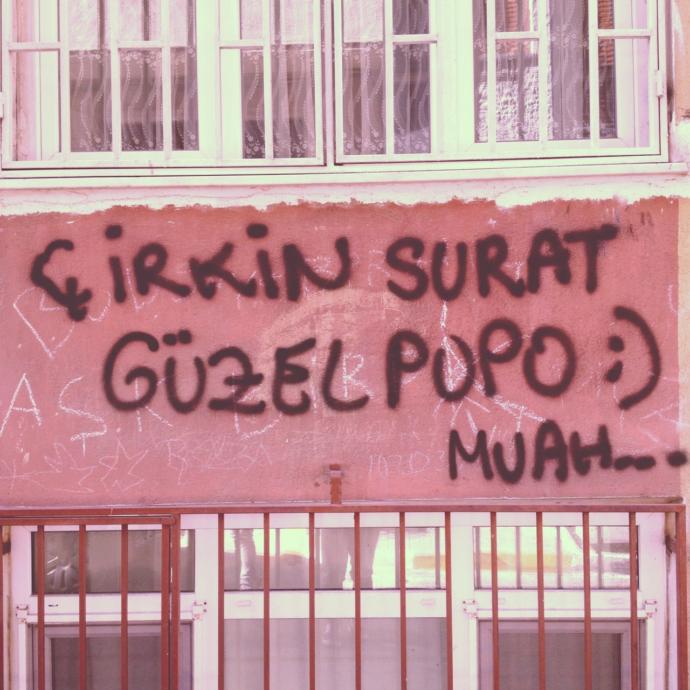 ÇİRKİN SURAT
GÜZEL POPO :)
MUAH...